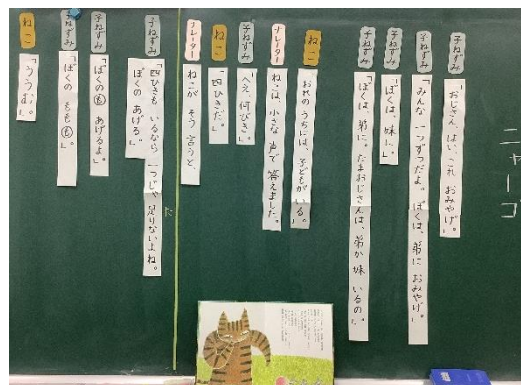 ニャーゴ
子ねずみ
「おじさん、はい、これ おみやげ。」
子ねずみ
「みんな 一つずつだよ。ぼくは、弟に おみやげ。」
子ねずみ
「ぼくは、妹に。」
子ねずみ
「ぼくは、弟に。たまおじさんは、弟か 妹 いるの。」
ねこ
おれの うちには、子どもが いる。」
ナレーター
ねこは、小さな 声で 答えました。
子ねずみ
「へえ、何びき。」
ねこ
「四ひきだ。」
ナレーター
ねこが そう 言うと、
子ねずみ
「四ひきも いるなら 一つじゃ 足りないよね。
ぼくの あげる。」
子ねずみ
「ぼくのも あげるよ。」
子ねずみ
「ぼくの ももも。」
ねこ
「ううむ。」